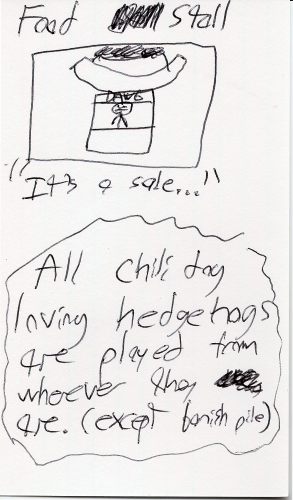 Food Stall
DAVE
"It's a sale..."
All chili dog
loving hedgehogs
are played from
wherever they
are. (except banish pile)